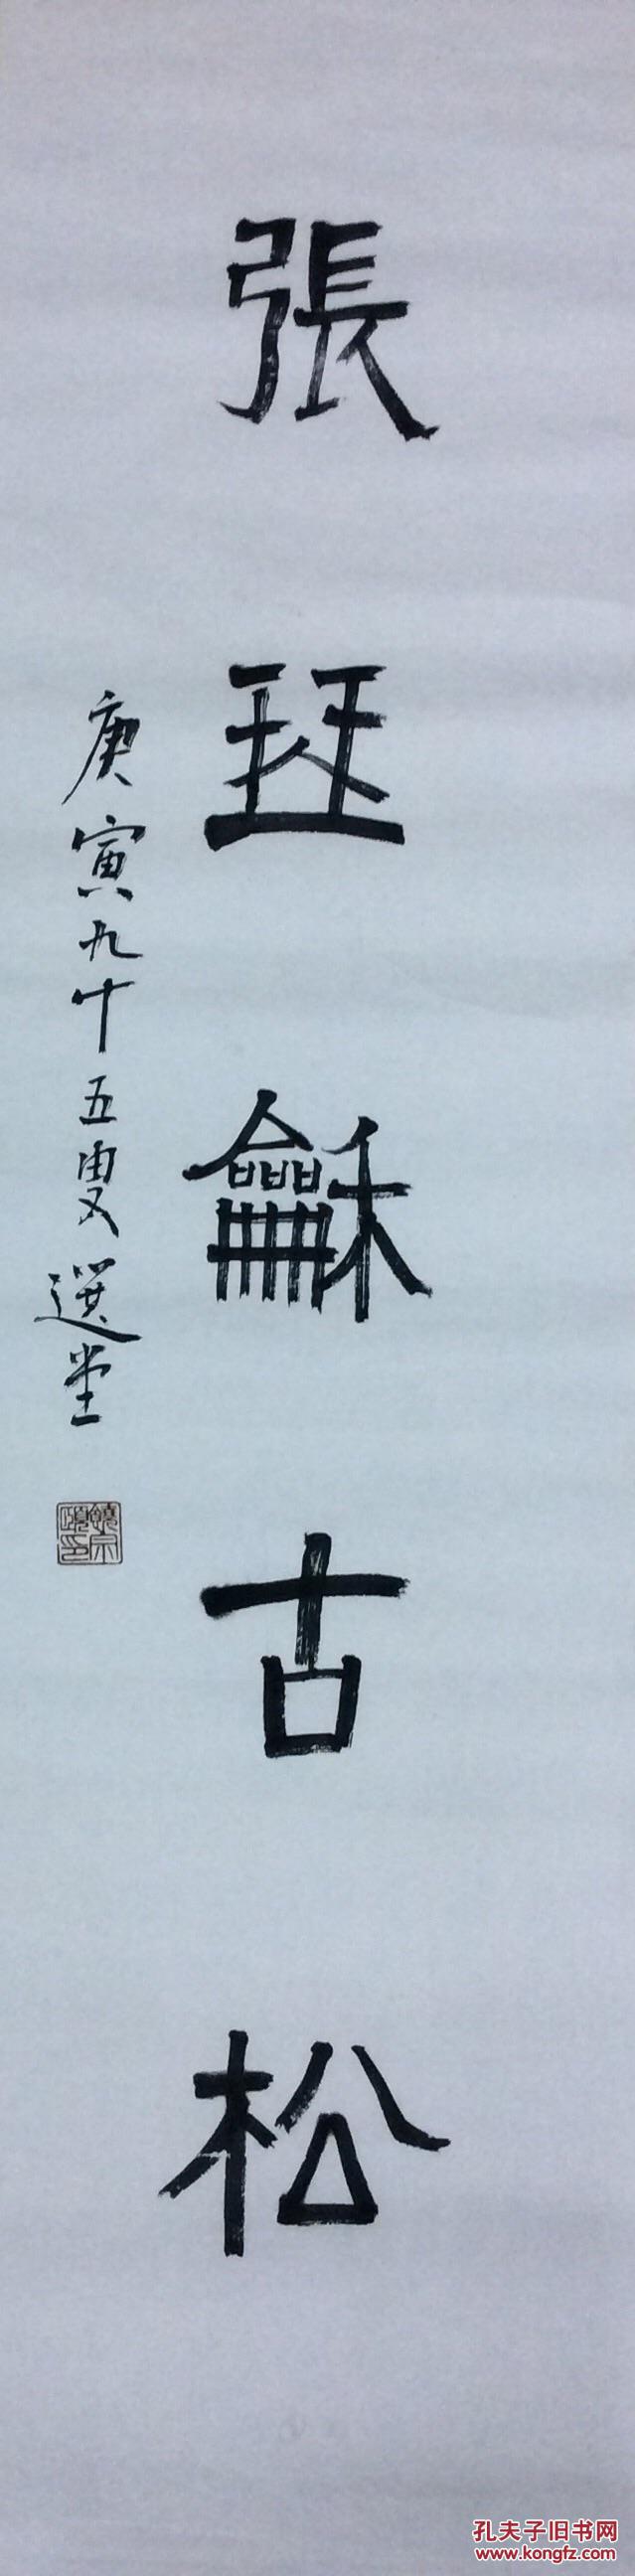 張琹龢古松
庚寅九十五叟選堂
饒宗頤印
孔夫子旧书网
www.kongfz.com